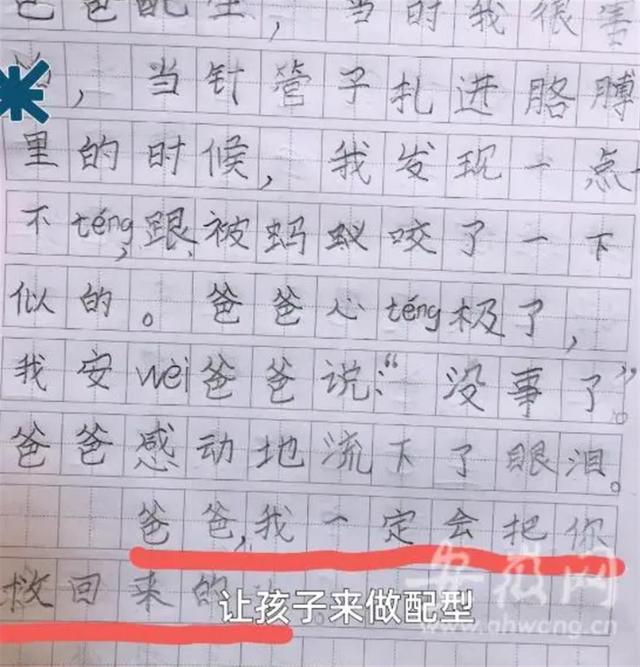 爸爸配型，当时我很害
怕，当针管子扎进胳膊
里的时候，我发现一点
不téng，跟被蚂蚁咬了一下
似的。爸爸心téng极了，
我安wèi爸爸说：“没事了”。
爸爸感动地流下了眼泪。
爸爸，我一定会把你
救回来的
让孩子来做配型
安徽网
ahwang.cn